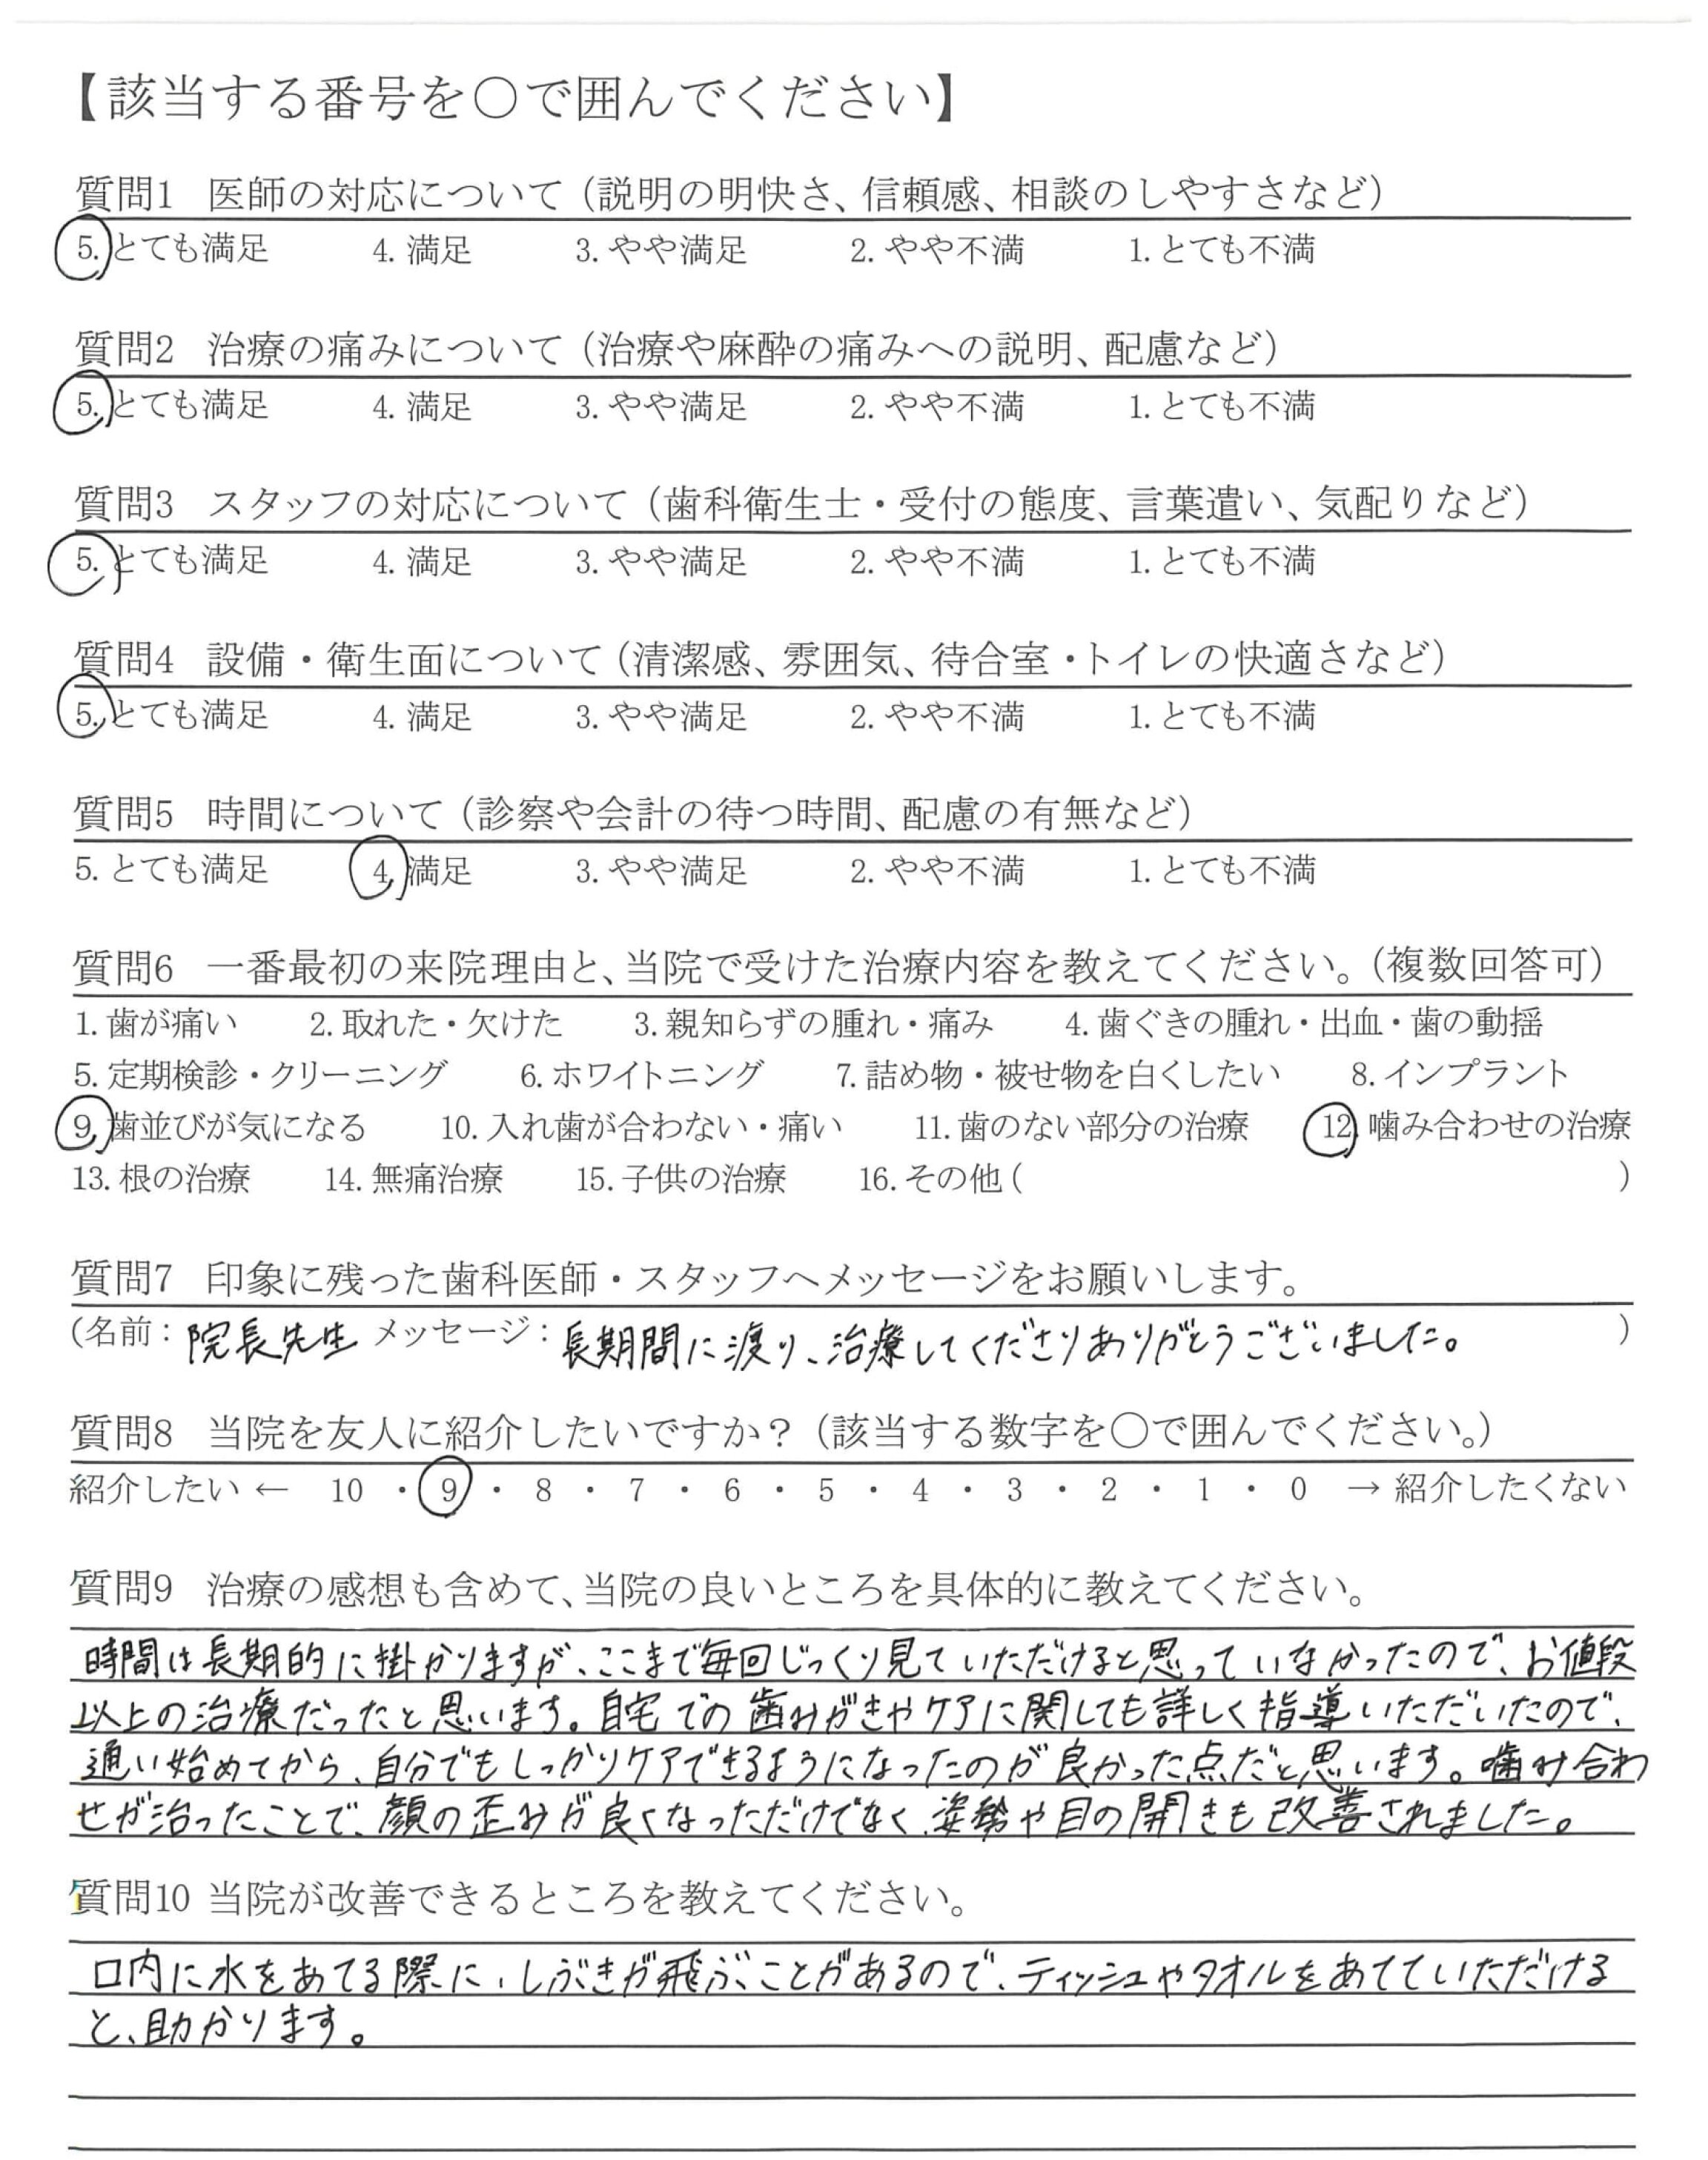 【該当する番号を〇で囲んでください】
質問1 医師の対応について（説明の明快さ、信頼感、相談のしやすさなど）
5. とても満足 4. 満足 3. やや満足 2. やや不満 1. とても不満
質問2 治療の痛みについて（治療や麻酔の痛みへの説明、配慮など）
5. とても満足 4. 満足 3. やや満足 2. やや不満 1. とても不満
質問3 スタッフの対応について（歯科衛生士・受付の態度、言葉遣い、気配りなど）
5. とても満足 4. 満足 3. やや満足 2. やや不満 1. とても不満
質問4 設備・衛生面について（清潔感、雰囲気、待合室・トイレの快適さなど）
5. とても満足 4. 満足 3. やや満足 2. やや不満 1. とても不満
質問5 時間について（診察や会計の待つ時間、配慮の有無など）
5. とても満足 4. 満足 3. やや満足 2. やや不満 1. とても不満
質問6 一番最初の来院理由と、当院で受けた治療内容を教えてください。（複数回答可）
1. 歯が痛い 2. 取れた・欠けた 3. 親知らずの腫れ・痛み 4. 歯ぐきの腫れ・出血・歯の動揺
5. 定期検診・クリーニング 6. ホワイトニング 7. 詰め物・被せ物を白くしたい 8. インプラント
9. 歯並びが気になる 10. 入れ歯が合わない・痛い 11. 歯のない部分の治療 12. 噛み合わせの治療
13. 根の治療 14. 無痛治療 15. 子供の治療 16. その他（ ）
質問7 印象に残った歯科医師・スタッフへメッセージをお願いします。
（名前：院長先生 メッセージ：長期間に渡り、治療してくださりありがとうございました。 ）
質問8 当院を友人に紹介したいですか？（該当する数字を〇で囲んでください。）
紹介したい ← 10 ・ 9 ・ 8 ・ 7 ・ 6 ・ 5 ・ 4 ・ 3 ・ 2 ・ 1 ・ 0 → 紹介したくない
質問9 治療の感想も含めて、当院の良いところを具体的に教えてください。
時間は長期的に掛かりますが、ここまで毎回じっくり見ていただけると思っていなかったので、お値段
以上の治療だったと思います。自宅での歯みがきやケアに関しても詳しく指導いただいたので、
通い始めてから、自分でもしっかりケアできるようになったのが良かった点だと思います。噛み合わ
せが治ったことで、顔の歪みが良くなっただけでなく、姿勢や目の開きも改善されました。
質問10 当院が改善できるところを教えてください。
口内に水をあてる際に、しぶきが飛ぶことがあるので、ティッシュやタオルをあてていただける
と、助かります。